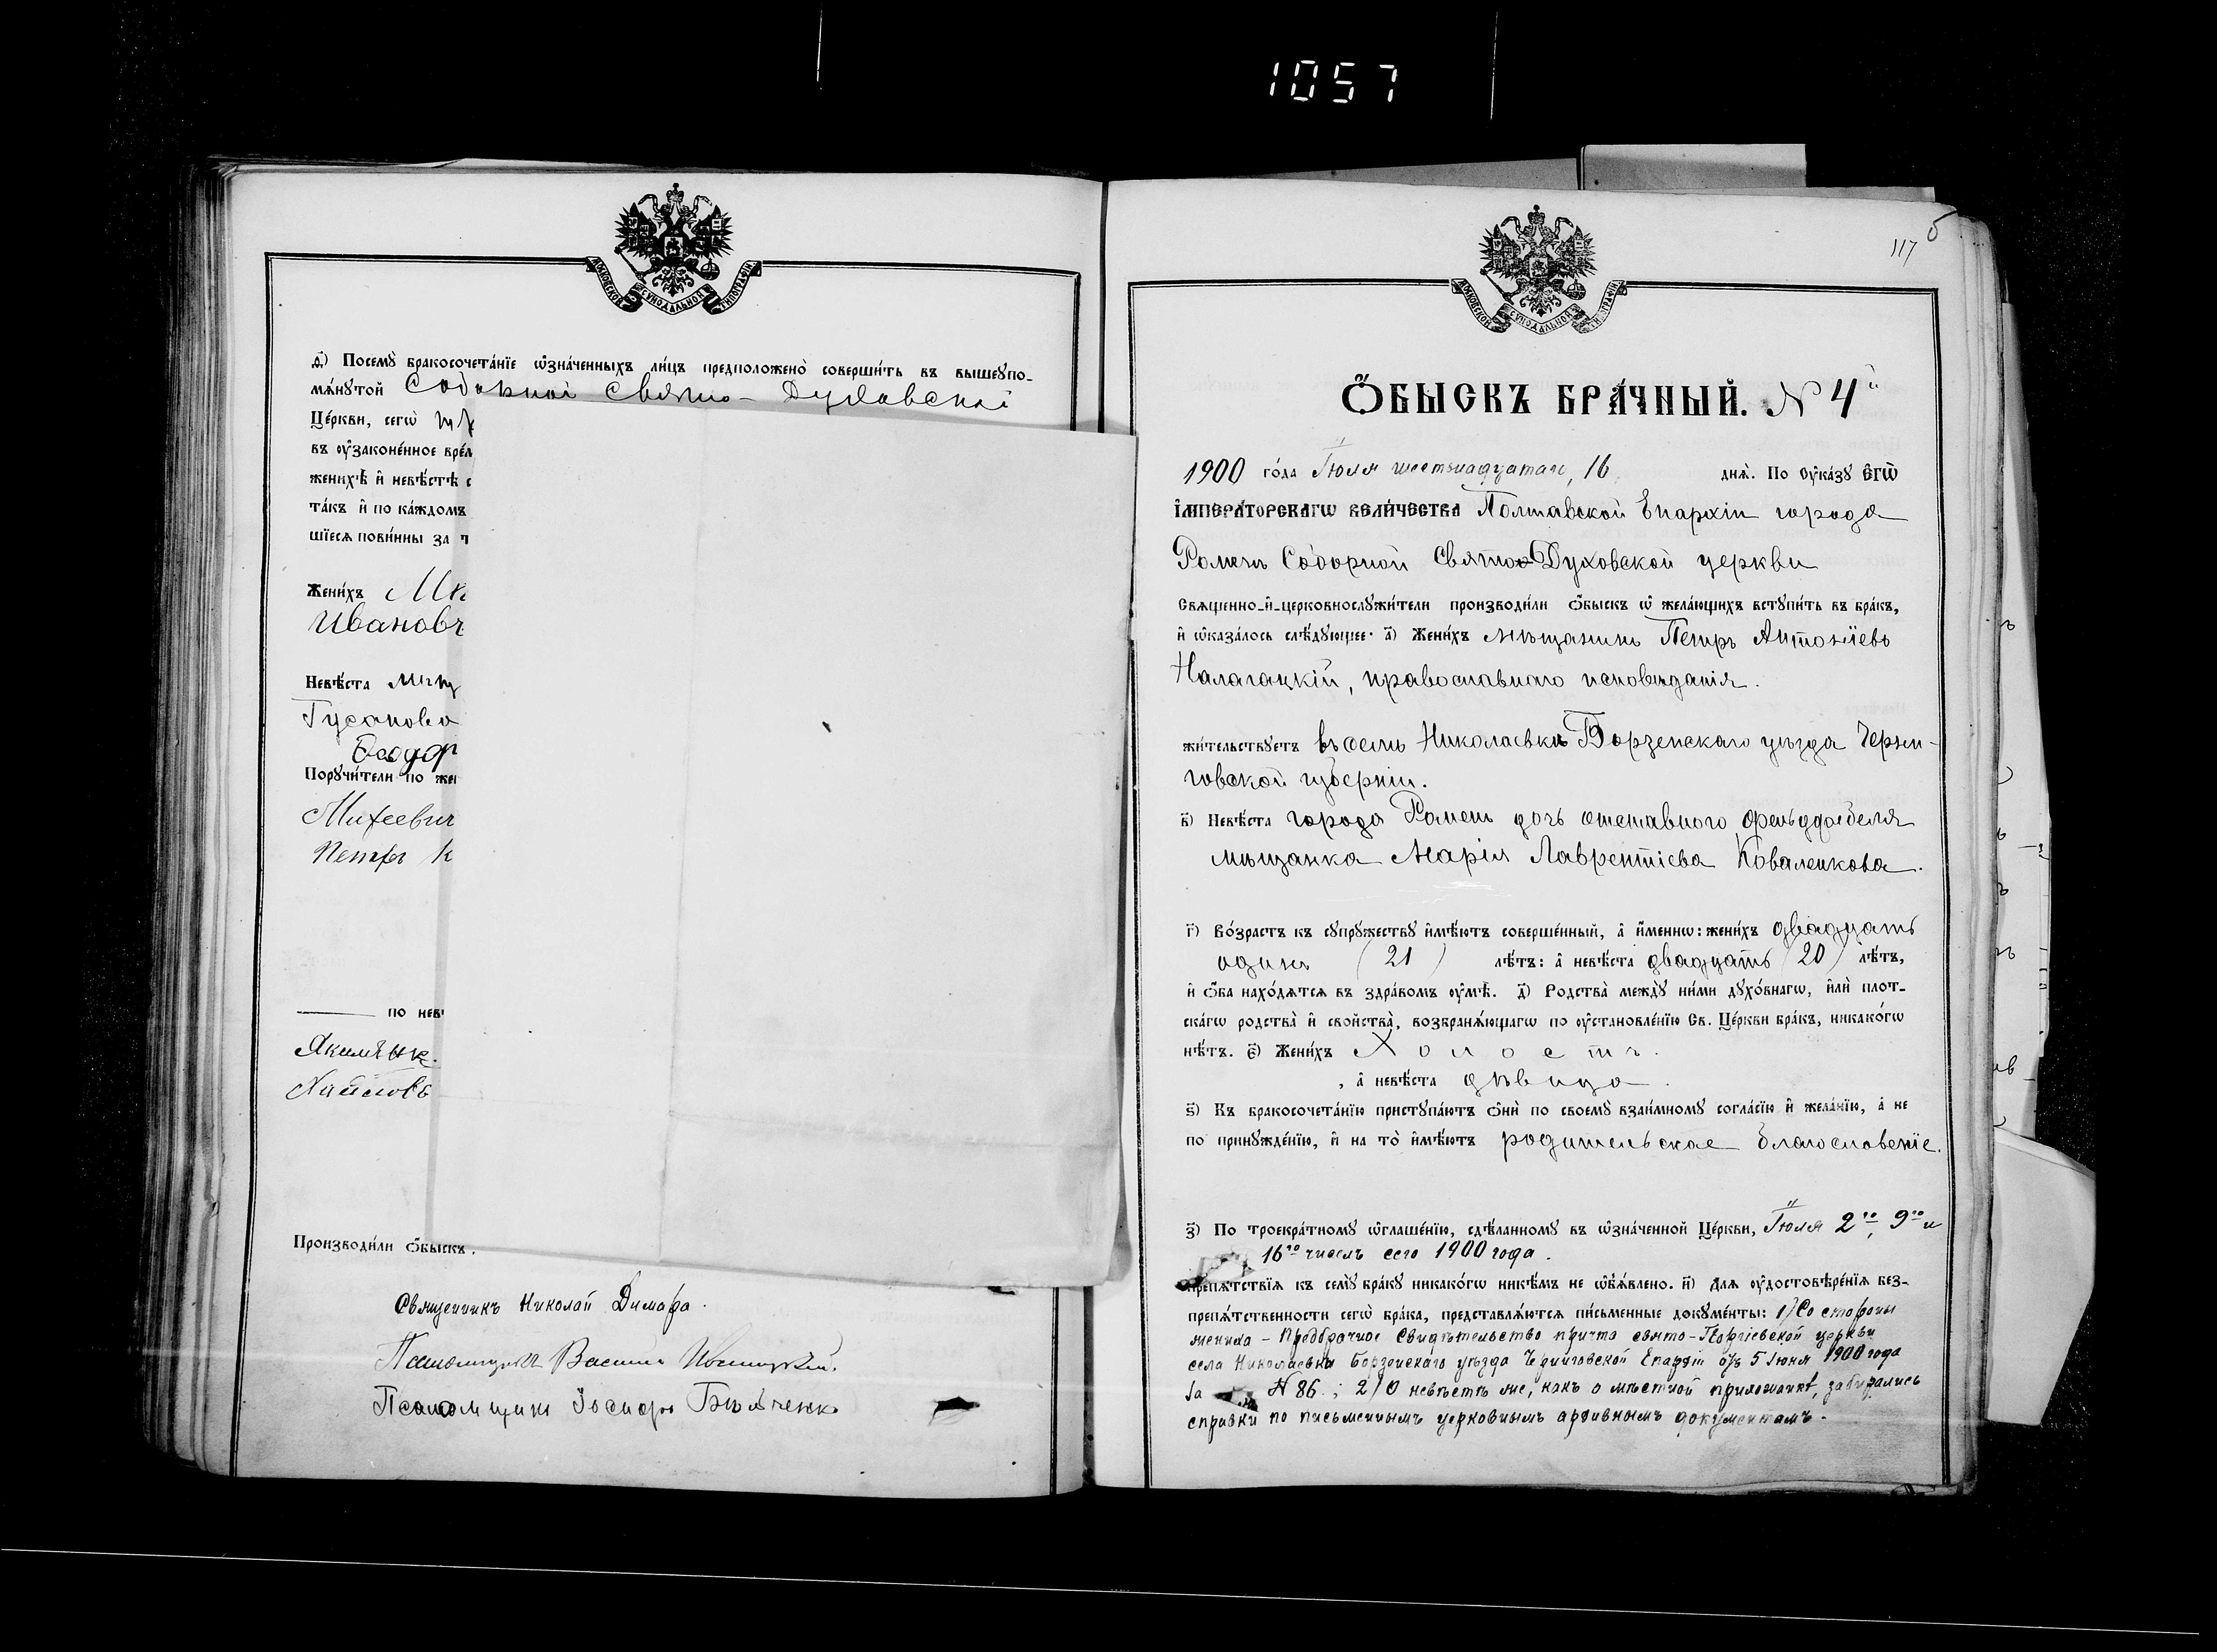 1057
МОСКОВСКОЙ СѴНОДАЛЬНОЙ ТИПОГРАФІИ
д҃) Посемꙋ̀ бракосочета́нїе ѡ҆зна́ченныхъ ли́цъ предположено̀ соверши́ть въ вышеꙋпо-
мѧ́нꙋтой Соборной Свято-Духовской
Це́ркви, сегѡ̀
въ ᲂу҆законе́нное
женихѣ̀ и҆ невѣ́стѣ
та́къ и҆ по ка́ждомъ
шїесѧ пови́нны за
Жени́хъ
Ивановъ
Невѣ́ста
Ѳеодор
Порꙋчи́тели по
Михеевич
Петръ К
по нев
Производи́ли ѻ҆́быскъ.
Священникъ Николай Димара.
Псаломщикъ Василій
Псаломщикъ
117
МОСКОВСКОЙ СѴНОДАЛЬНОЙ ТИПОГРАФІИ
Ѻ҆́БЫСКЪ БРА́ЧНЫЙ. № 4й
1900 го́да Іюля шестьнадцатаго, 16 днѧ̀. По ᲂу҆ка́зꙋ є҆гѡ̀
и҆мпера́торскагѡ вели́чества Полтавской Епархіи города
Роменъ Соборной Свято-Духовской церкви
Свѧщенно-и҆-церковнослꙋжи́тели производи́ли ѻ҆́быскъ ѡ҆ жела́ющихъ встꙋпи́ть въ бра́къ,
и҆ ѡ҆каза́лось слѣ́дꙋющее: а҃) Жени́хъ мѣщанинъ Петръ Антоніевъ
Налагацкій, православнаго исповѣданія.
жи́тельствꙋетъ въ селѣ Николаевкѣ Борзенскаго уѣзда Черни-
говской губерніи.
в҃) Невѣ́ста города Роменъ дочь отставного фельдфебеля
мѣщанка Марія Лаврентіева Коваленкова.
г҃) Во́зрастъ къ сꙋпрꙋ́жествꙋ и҆мѣ́ютъ соверше́нный, а҆ и҆́меннѡ: жени́хъ двадцать
одинъ (21) лѣ́тъ: а҆ невѣ́ста двадцать (20) лѣ́тъ,
и҆ ѻ҆́ба нахо́дѧтсѧ въ здра́вомъ ᲂу҆мѣ̀. д҃) Родства̀ междꙋ̀ ни́ми дꙋхо́внагѡ, и҆лѝ плот-
ска́гѡ родства̀ и҆ сво́йства̀, возбранѧ́ющагѡ по ᲂу҆становле́нїю Св. Це́ркви бра́къ, никако́гѡ
нѣ́тъ. є҃) Жени́хъ Холостъ.
, а҆ невѣ́ста дѣвица.
ѕ҃) Къ бракосочета́нїю пристꙋпа́ютъ ѻ҆нѝ по своемꙋ̀ взаи́мномꙋ согла́сїю и҆ жела́нїю, а҆ не
по принꙋжде́нїю, и҆ на то̀ и҆мѣ́ютъ родительское благословеніе.
з҃) По троекра́тномꙋ ѡ҆глаше́нїю, сдѣ́ланномꙋ въ ѡ҆зна́ченной Це́ркви, Іюля 2го, 9го и
16го числъ сего 1900 года.
препѧ́тствїѧ къ семꙋ̀ бра́кꙋ никако́гѡ никѣ́мъ не ѡ҆б̾ѧ́влено. и҃) Длѧ ᲂу҆достовѣре́нїѧ без-
препѧ́тственности сегѡ̀ бра́ка, представлѧ́ютсѧ пи́сьменные докꙋме́нты: 1) Со стороны
жениха - Предбрачное Свидѣтельство причта свято-Георгіевской церкви
села Николаевки Борзенскаго уѣзда Черниговской Епархіи отъ 5 Іюня 1900 года
за № 86.; 2) О невѣстѣ же, какъ о мѣстной прихожанкѣ, забирались
справки по письменнымъ церковнымъ архивнымъ документамъ.